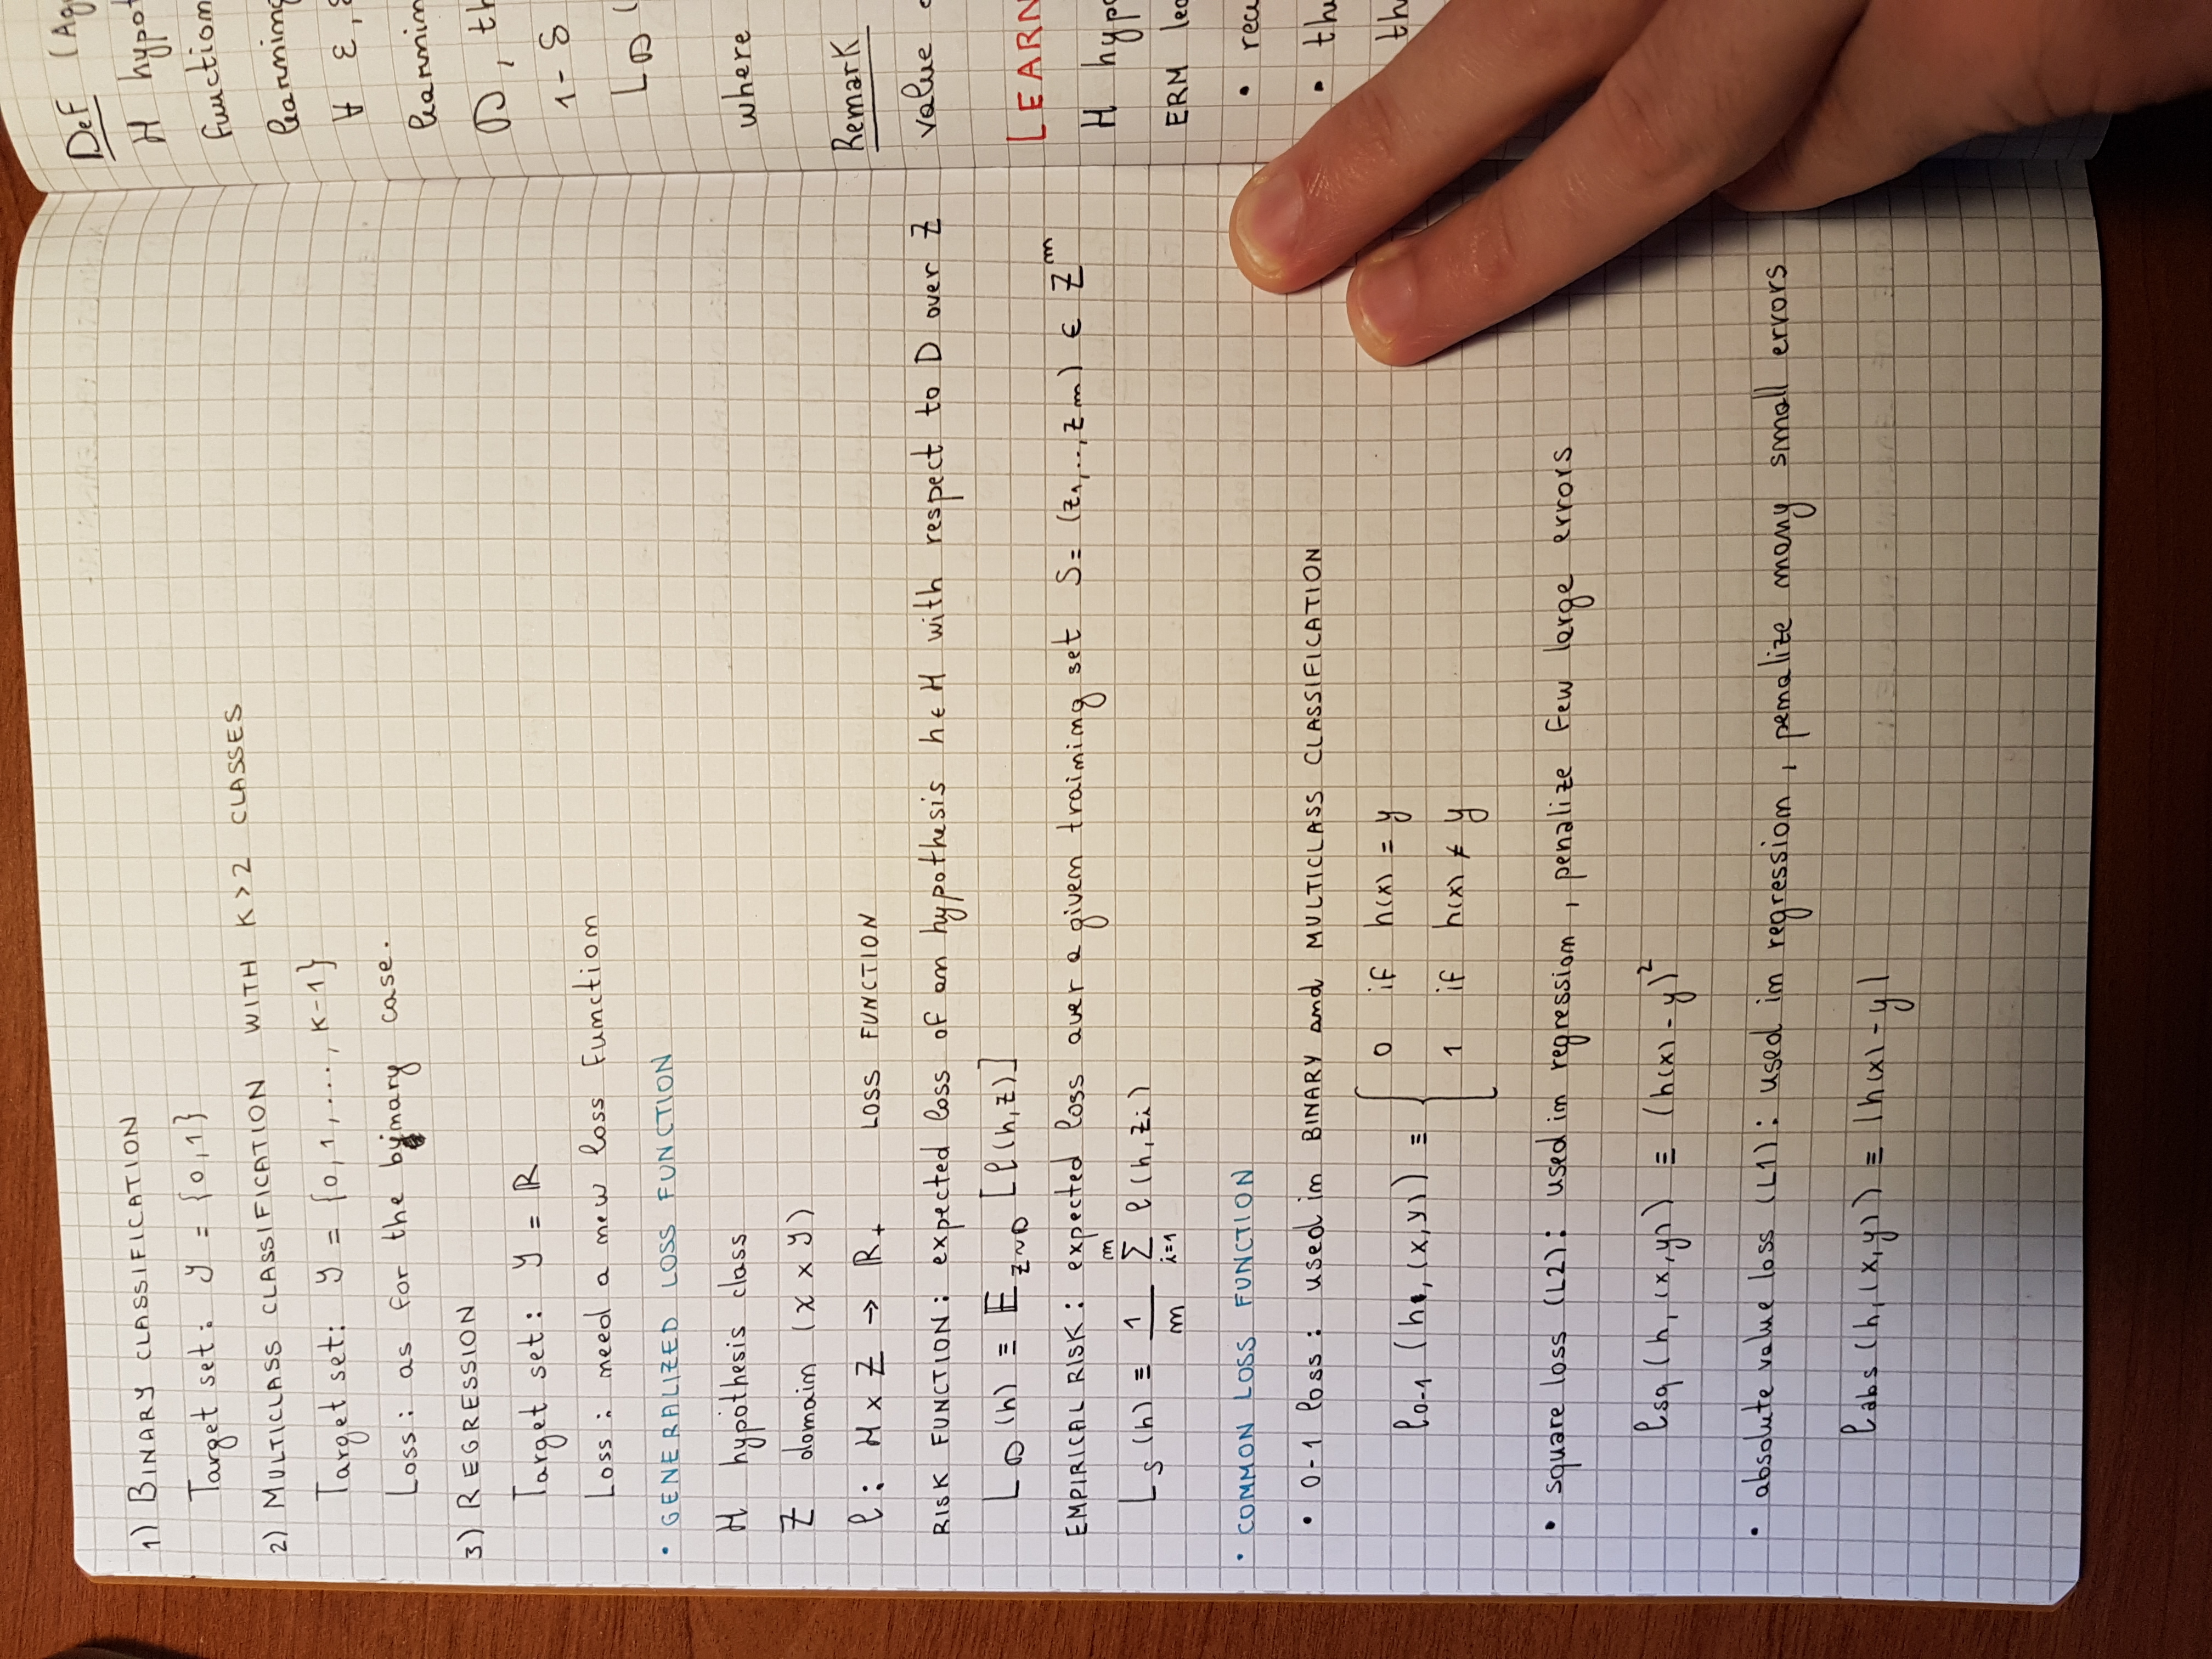 1) BINARY CLASSIFICATION
Target set: Y = {0,1}
2) MULTICLASS CLASSIFICATION WITH K>2 CLASSES
Target set: Y = {0,1,...,K-1}
Loss: as for the binary case.
3) REGRESSION
Target set: Y = ℝ
Loss: need a new loss function
• GENERALIZED LOSS FUNCTION
H hypothesis class
Z domain (X x Y)
ℓ: H x Z → ℝ+ LOSS FUNCTION
RISK FUNCTION: expected loss of an hypothesis h ∈ H with respect to D over Z
L_D (h) ≡ 𝔼_{Z~D} [ℓ(h,z)]
EMPIRICAL RISK: expected loss over a given training set S= (z1,..,zm) ∈ Z^m
L_S (h) ≡ 1/m ∑_{i=1}^{m} ℓ(h,zi)
• COMMON LOSS FUNCTION
• 0-1 loss: used in BINARY and MULTICLASS CLASSIFICATION
ℓ0-1 (h, (x,y)) ≡ { 0 if h(x) = y
1 if h(x) ≠ y
• square loss (L2): used in regression, penalize few large errors
ℓsq (h, (x,y)) ≡ (h(x) - y)²
• absolute value loss (L1): used in regression, penalize many small errors
ℓabs (h, (x,y)) ≡ |h(x) - y|
Def (Ag
H hypot
function
learning
∀ ε,
learnin
D, th
1-δ
L_D (
where
Remark
value
LEARN
H hypo
ERM lea
• rea
• the
the